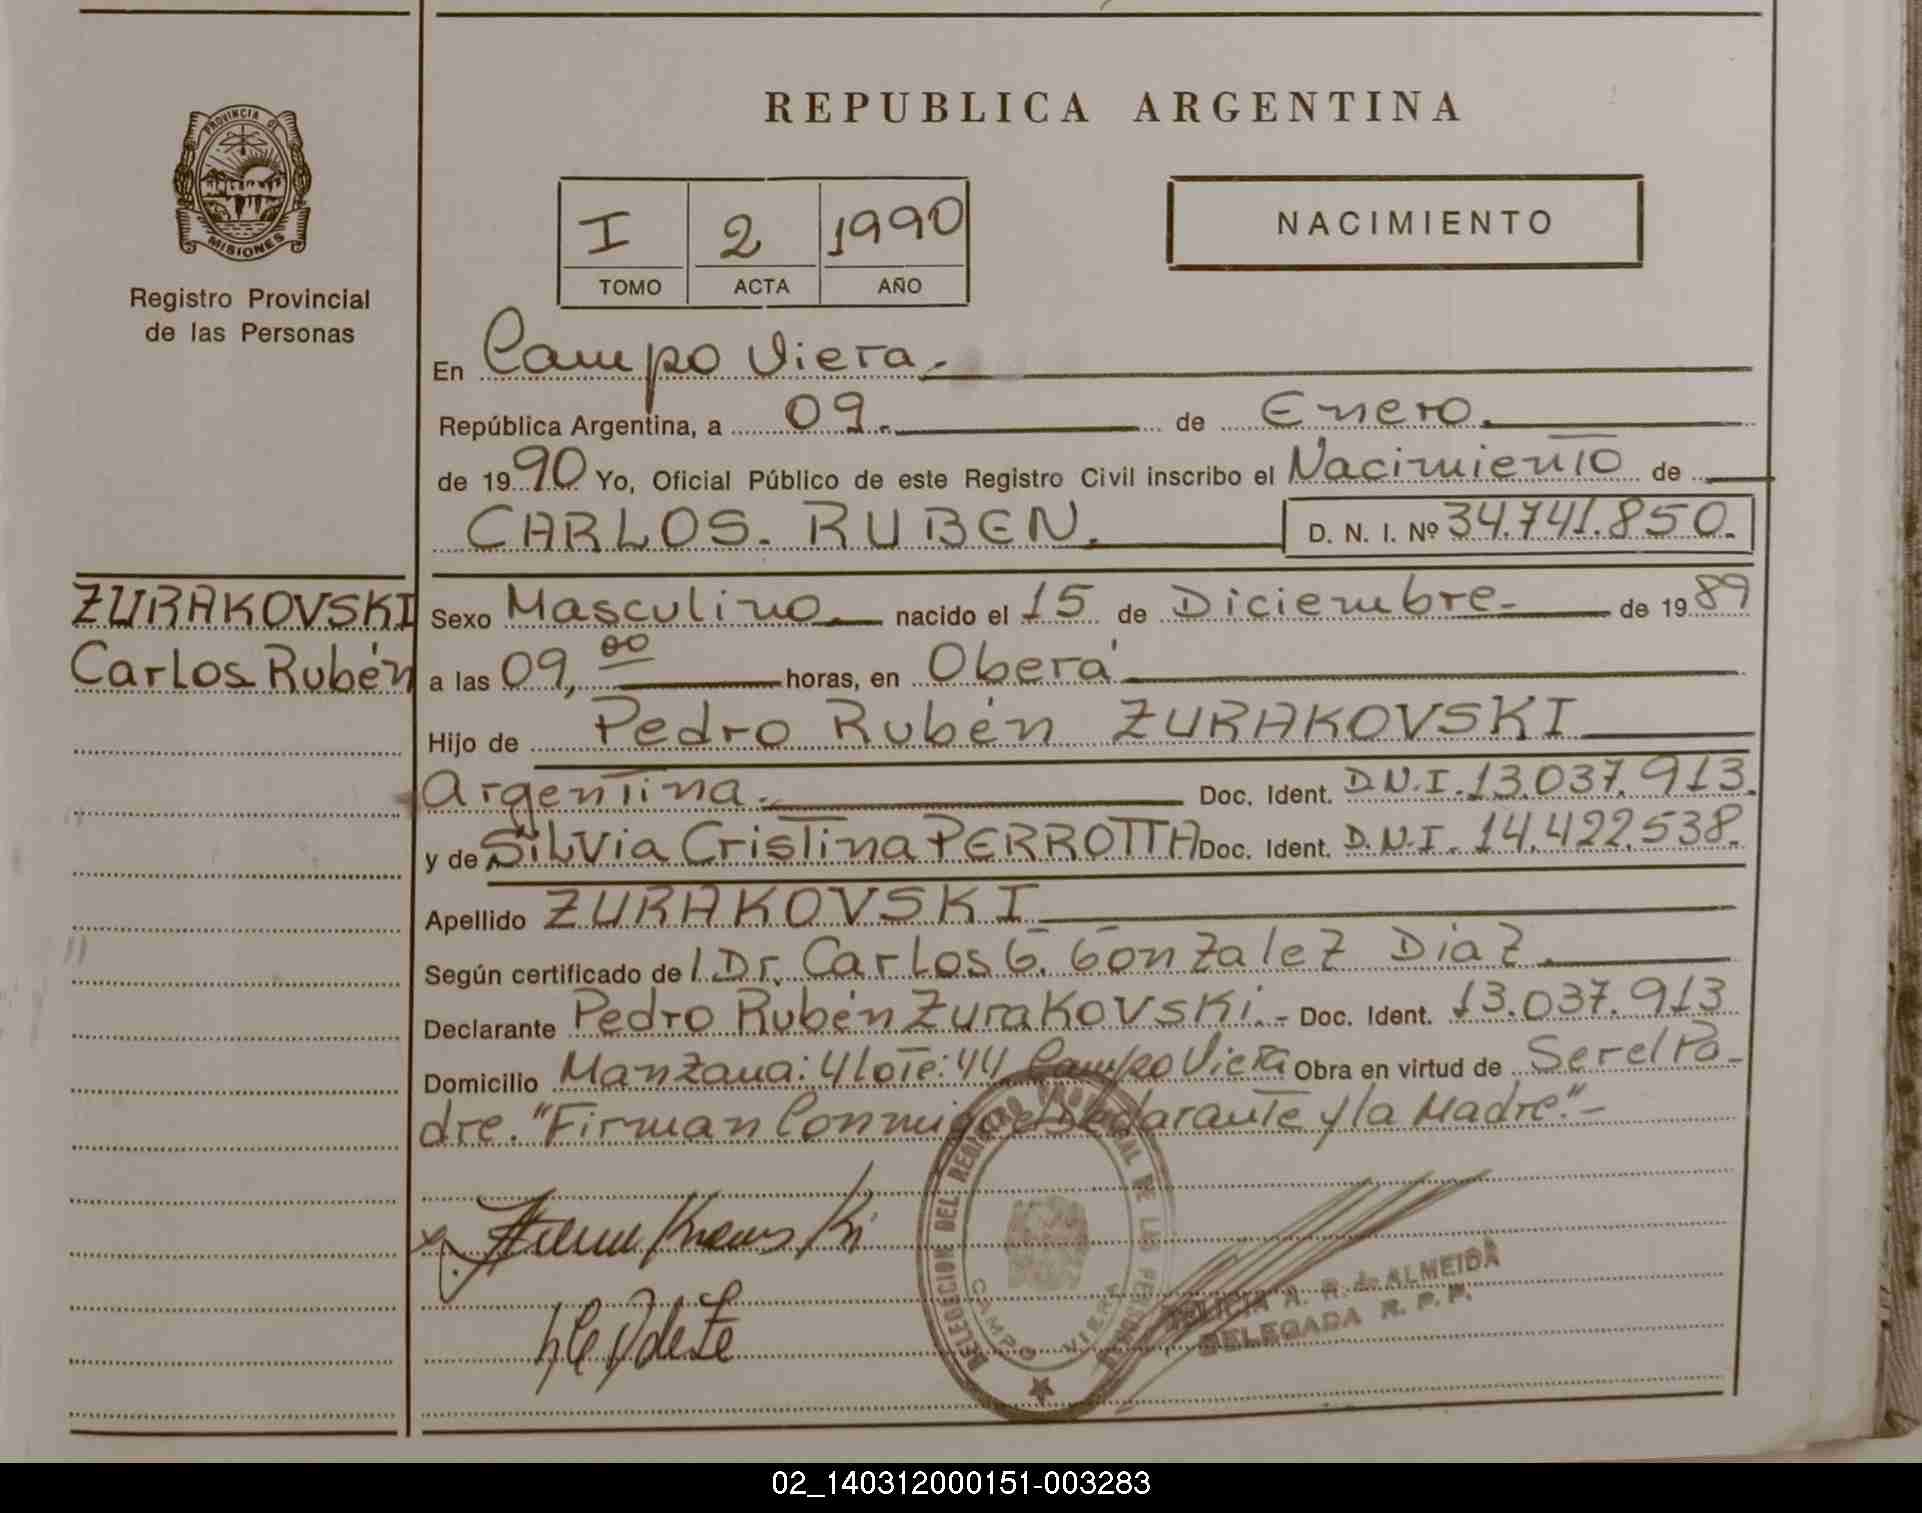 REPUBLICA ARGENTINA
PROVINCIA DE
MISIONES
Registro Provincial
de las Personas
I 2 1990
TOMO ACTA AÑO
NACIMIENTO
En Campo Viera.
República Argentina, a 09. de Enero.
de 1990 Yo, Oficial Público de este Registro Civil inscribo el Nacimiento de
CARLOS. RUBEN. D. N. I. Nº 34.741.850.
ZURAKOVSKI
Carlos Rubén
Sexo Masculino nacido el 15 de Diciembre- de 1989
a las 09,00 horas, en Oberá
Hijo de Pedro Rubén ZURAKOVSKI
Argentina. Doc. Ident. D.N.I. 13.037.913.
y de Silvia Cristina PERROTTA Doc. Ident. D.N.I. 14.422.538.
Apellido ZURAKOVSKI
Según certificado de l Dr. Carlos G. Gonzalez Diaz.
Declarante Pedro Rubén Zurakovski.- Doc. Ident. 13.037.913
Domicilio Manzana: 4 lote: 44 Campo Viera Obra en virtud de Ser el Pa-
dre. "Firman Conmigo el Declarante y la Madre."-
DELEGACION DEL REGISTRO PROVINCIAL DE LAS PERSONAS
CAMPO VIERA
ALMEIDA
DELEGADA R. P. P.
02_140312000151-003283